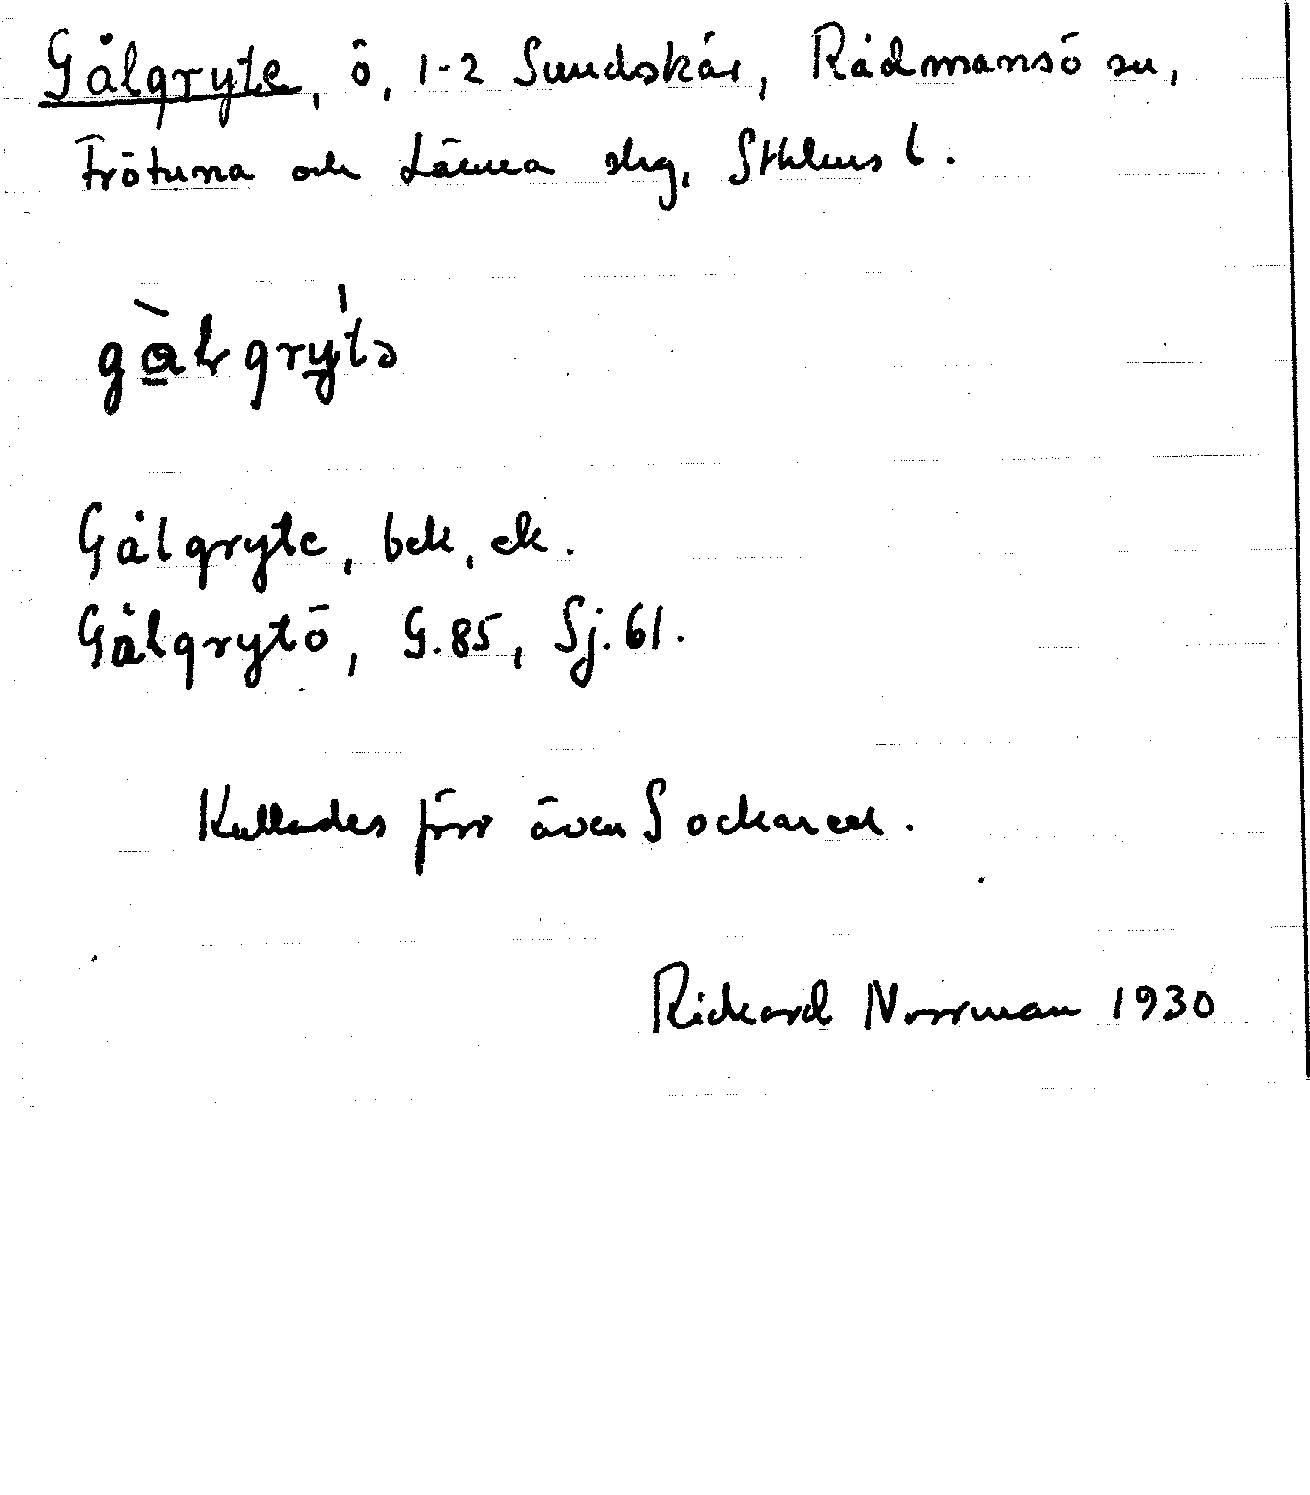 Gålgryte, ö, 1-2 Sundskär, Rådmansö sn,
Frötuna och Länna slg, Sthlms l.
gàlgrýtə
Gålgryte, bek, ek.
Gålgrytö, G.85, Sj.61.
Kallades förr även Sockarna.
Rickard Norrman 1930